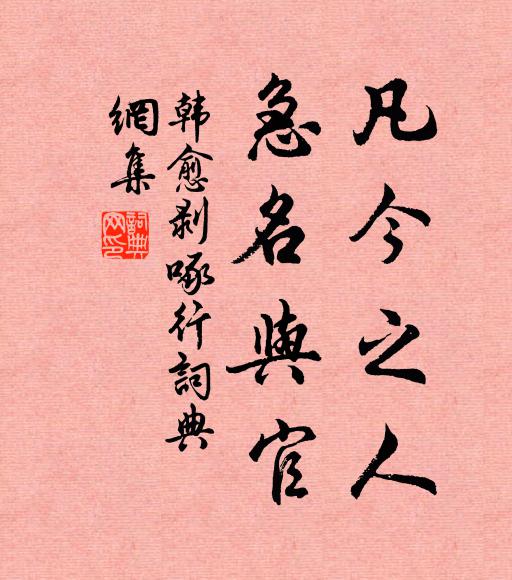 凡今之人
急名與官
韩愈剥啄行詞典
網集
詞典
网印